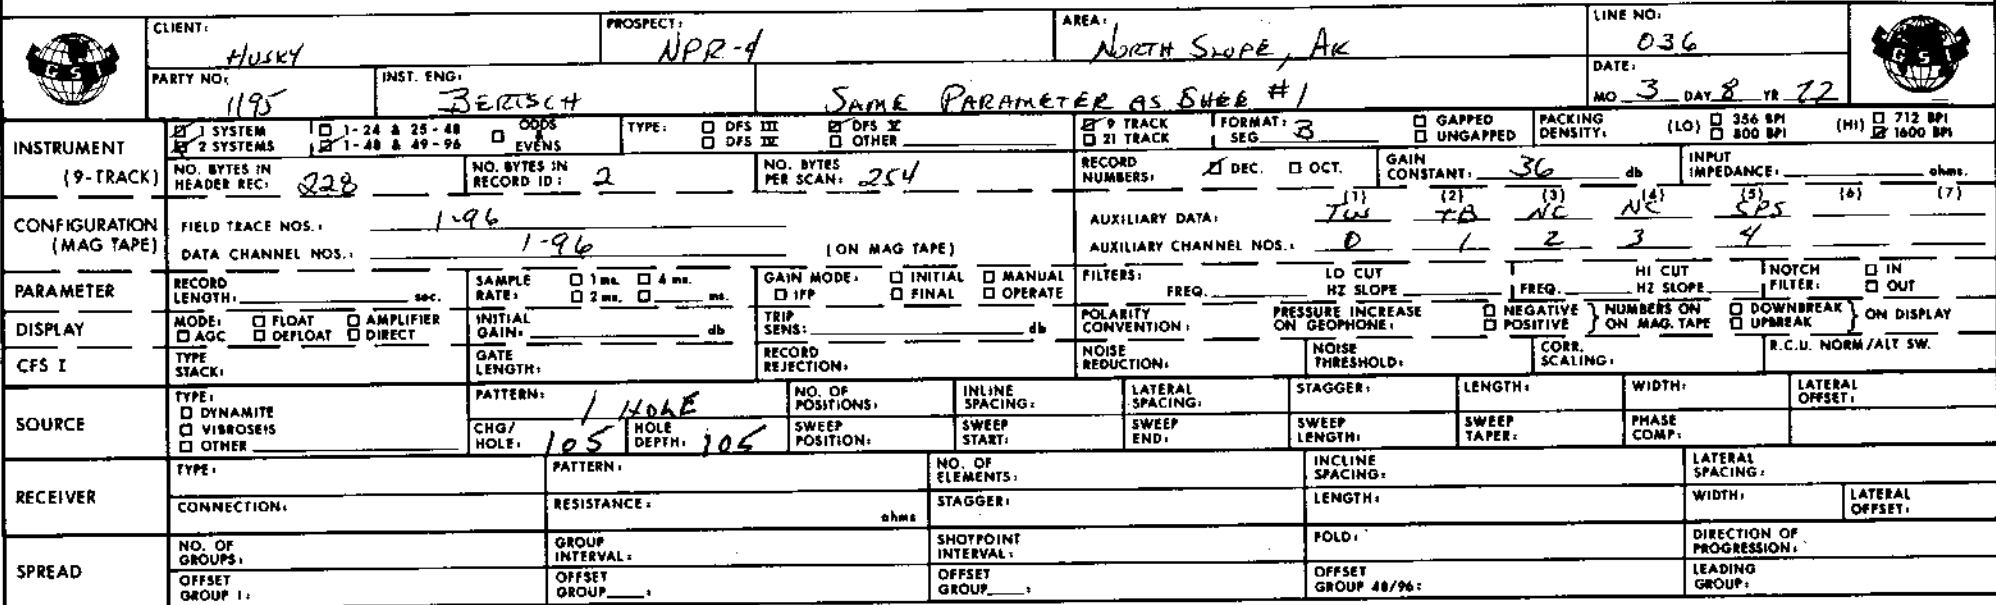 CLIENT: HUSKY PROSPECT: NPR-4 AREA: NORTH SLOPE, AK LINE NO: 036
GSI GSI
PARTY NO: 1195 INST. ENG: BERISCH SAME PARAMETER AS SHEE #1 DATE: MO 3 DAY 8 YR 77
INSTRUMENT 1 SYSTEM 1-24 & 25-48 ODDS & EVENS TYPE: DFS III DFS V 9 TRACK FORMAT: SEG B GAPPED PACKING DENSITY: (LO) 356 BPI (HI) 712 BPI
2 SYSTEMS 1-48 & 49-96 DFS IV OTHER 21 TRACK UNGAPPED 800 BPI 1600 BPI
(9-TRACK) NO. BYTES IN HEADER REC: 228 NO. BYTES IN RECORD ID: 2 NO. BYTES PER SCAN: 254 RECORD NUMBERS: DEC. OCT. GAIN CONSTANT: 36 db INPUT IMPEDANCE: ohms.
CONFIGURATION (MAG TAPE) FIELD TRACE NOS.: 1-96 AUXILIARY DATA: (1) TW (2) TB (3) NC (4) NC (5) SPS (6) (7)
DATA CHANNEL NOS.: 1-96 (ON MAG TAPE) AUXILIARY CHANNEL NOS.: 0 1 2 3 4
PARAMETER RECORD LENGTH: sec. SAMPLE RATE: 1 ms. 4 ms. 2 ms. ms. GAIN MODE: INITIAL MANUAL IFP FINAL OPERATE FILTERS: FREQ. LO CUT HZ SLOPE FREQ. HI CUT HZ SLOPE NOTCH FILTER: IN OUT
DISPLAY MODE: FLOAT AMPLIFIER AGC DEFLOAT DIRECT INITIAL GAIN: db TRIP SENS: db POLARITY CONVENTION: PRESSURE INCREASE ON GEOPHONE: NEGATIVE POSITIVE NUMBERS ON ON MAG. TAPE DOWNBREAK UPBREAK ON DISPLAY
CFS I TYPE STACK: GATE LENGTH: RECORD REJECTION: NOISE REDUCTION: NOISE THRESHOLD: CORR. SCALING: R.C.U. NORM/ALT SW.
SOURCE TYPE: DYNAMITE VIBROSEIS OTHER PATTERN: 1 HOLE NO. OF POSITIONS: INLINE SPACING: LATERAL SPACING: STAGGER: LENGTH: WIDTH: LATERAL OFFSET:
CHG/HOLE: 105 HOLE DEPTH: 105 SWEEP POSITION: SWEEP START: SWEEP END: SWEEP LENGTH: SWEEP TAPER: PHASE COMP:
RECEIVER TYPE: PATTERN: NO. OF ELEMENTS: INCLINE SPACING: LATERAL SPACING:
CONNECTION: RESISTANCE: ohms STAGGER: LENGTH: WIDTH: LATERAL OFFSET:
SPREAD NO. OF GROUPS: GROUP INTERVAL: SHOTPOINT INTERVAL: FOLD: DIRECTION OF PROGRESSION:
OFFSET GROUP 1: OFFSET GROUP : OFFSET GROUP : OFFSET GROUP 48/96: LEADING GROUP: